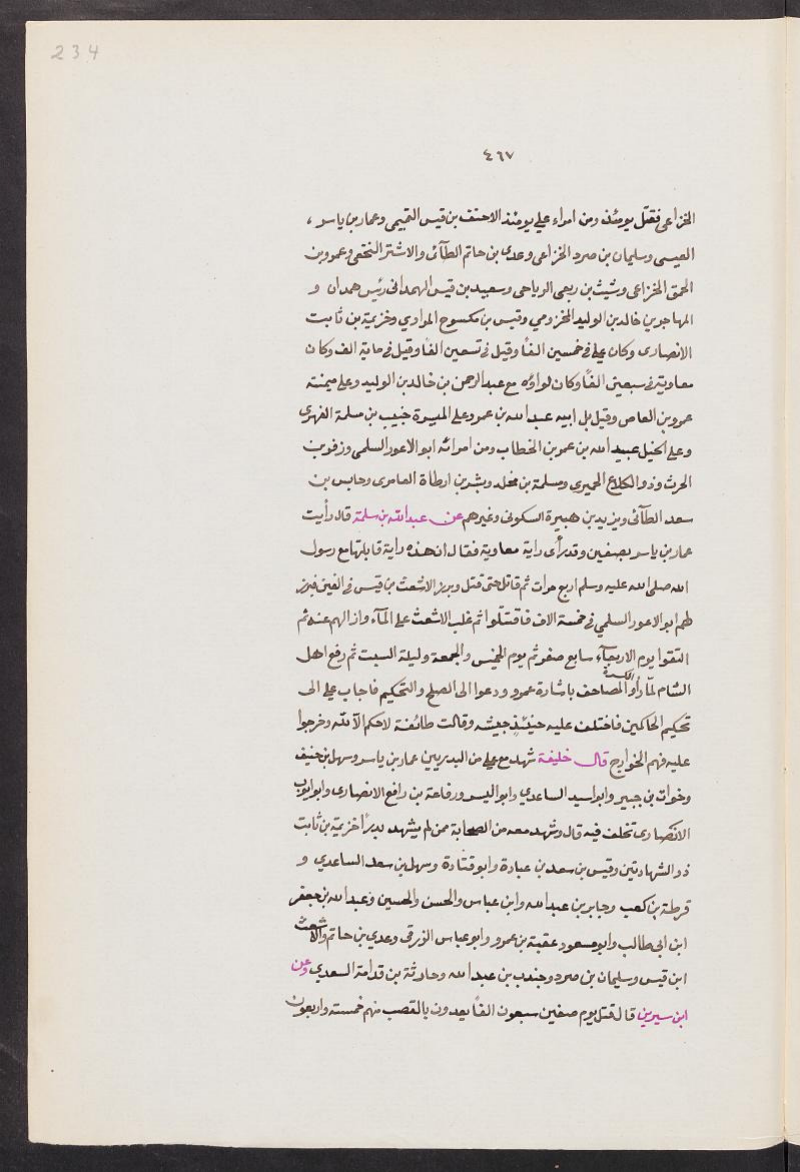 234
٤٦٧
الخزاعى فقتل يومئذ ومن امراء على يومئذ الاحنف بن قيس التميمى وعمار بن ياسر ،
العبسى وسليمان بن صرد الخزاعى وعدى بن حاتم الطآئى والاشتر النخعى وعمرو بن
الحمق الخزاعى وشبث بن ربعى الرياحى وسعيد بن قيس الهمدانى رئيس همدان و
المهاجر بن خالد بن الوليد المخزومي وقيس بن مكسوح المرادي وخزيمة بن ثابت
الانصارى وكان على فى خمسين الفًا وقيل فى تسعين الفًا وقيل فى ماية الف وكان
معاوية فى سبعين الفًا وكان لواؤه مع عبد الرحمن بن خالد بن الوليد وعلى ميمنته
عمرو بن العاص وقيل بل ابنه عبد الله بن عمرو على الميسرة حبيب بن مسلمة الفهرى
وعلى الخيل عبيد الله بن عمر بن الخطاب ومن امرائه ابو الاعور السلمى وزفر بن
الحرث وذو الكلاع الحميري ومسلمة بن مخلد وبشر بن ارطاة العامرى وحابس بن
سعد الطآئى ويزيد بن هبيرة السكونى وغيرهم عن عبد الله بن سلمة قال رأيت
عمار بن ياسر بصفين وقد رأى راية معاوية فقال ان هذه راية قابلتها مع رسول
الله صلى الله عليه وسلم اربع مرات ثم قاتل حتى قتل وبرز الاشعث بن قيس فى الفين فبرز
لهم ابو الاعور السلمي فى خمسة الاف فاقتتلوا ثم غلب الاشعث على المآء وازالهم عنه ثم
التقوا يوم الاربعآء سابع صفر ثم يوم الخميس والجمعة وليلة السبت ثم رفع اهل
الشام لمّا رأوا الكسرة المصاحف باشارة عمرو ودعوا الى الصلح والتحكيم فاجاب على الى
تحكيم الحاكمين فاختلف عليه حينئذ جيشه وقالت طائفة لا حكم الا لله وخرجوا
عليه فهم الخوارج قال خليفة شهد مع على من البدريين عمار بن ياسر وسهل بن حنيف
وخوات بن جبير وابو اسيد الساعدي وابو اليسر ورفاعة بن رافع الانصارى وابو ايوب
الانصارى تخلف فيه قال وشهد معه من الصحابة ممن لم يشهد بدرًا خزيمة بن ثابت
ذو الشهادتين وقيس بن سعد بن عبادة وابو قتادة وسهل بن سعد الساعدي و
قرظة بن كعب وجابر بن عبد الله وابن عباس والحسن والحسين وعبد الله بن جعفر
ابن ابى طالب وابو مسعود عقبة بن عمرو وابو عياس الزرقى وعدي بن حاتم والاشعث
ابن قيس وسليمان بن صرد وجندب بن عبد الله وحارثة بن قدامة السعدي وعن
ابن سيرين قال قتل يوم صفين سبعون الفًا يعدون بالقصب منهم خمسته واربعون